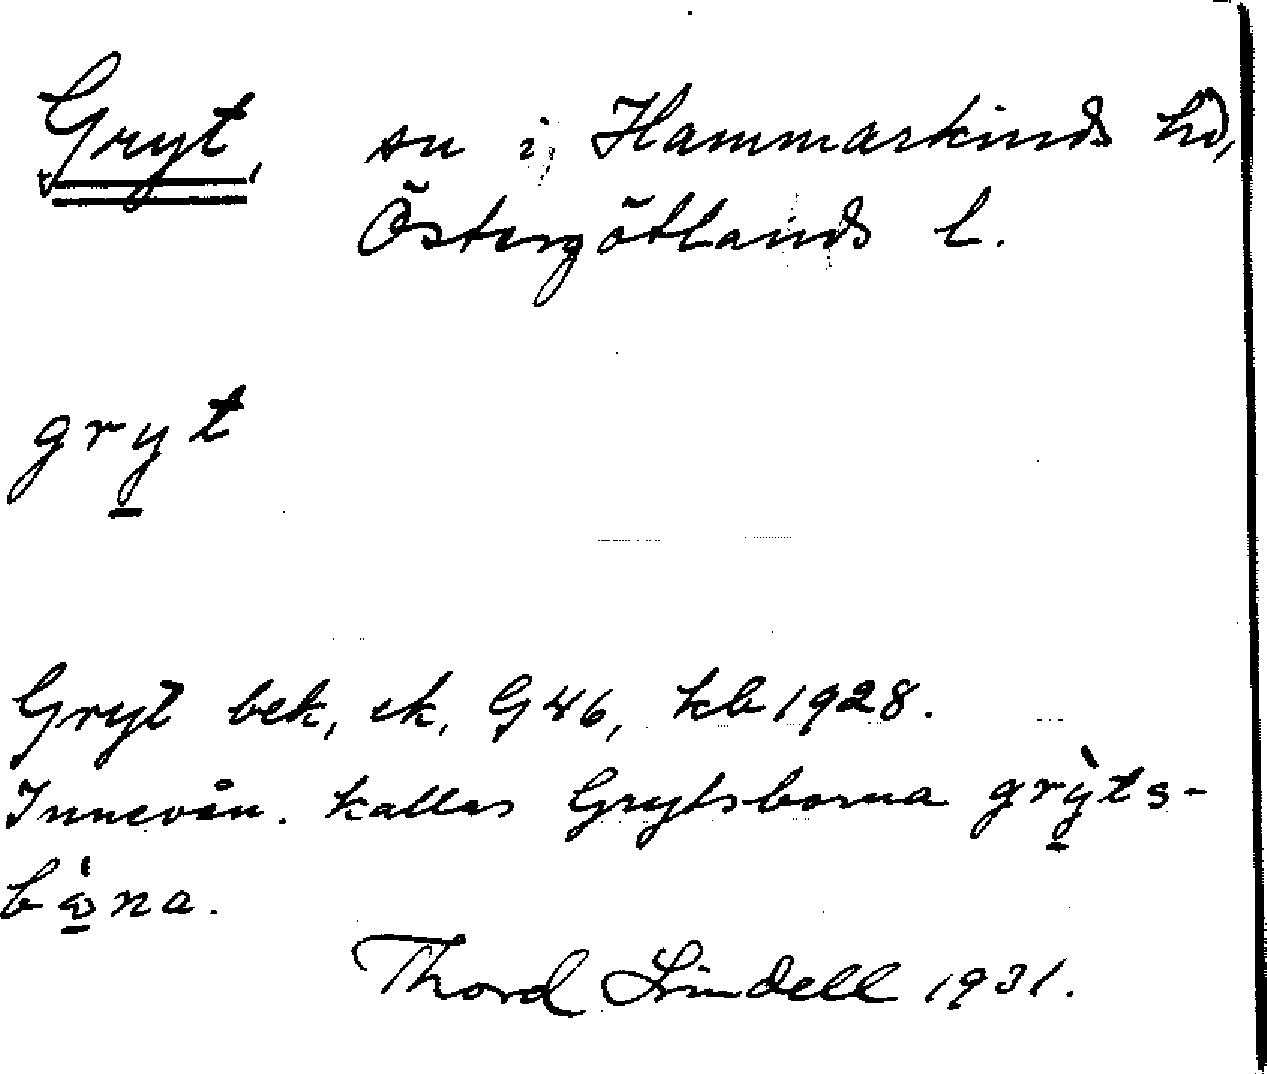 Gryt, sn i Hammarkinds hd,
Östergötlands l.
gryt
Gryt bek, ek, G46, kb 1928.
Innevån. kallas Grytsborna grỳts-
na.
Thord Lindell 1931.